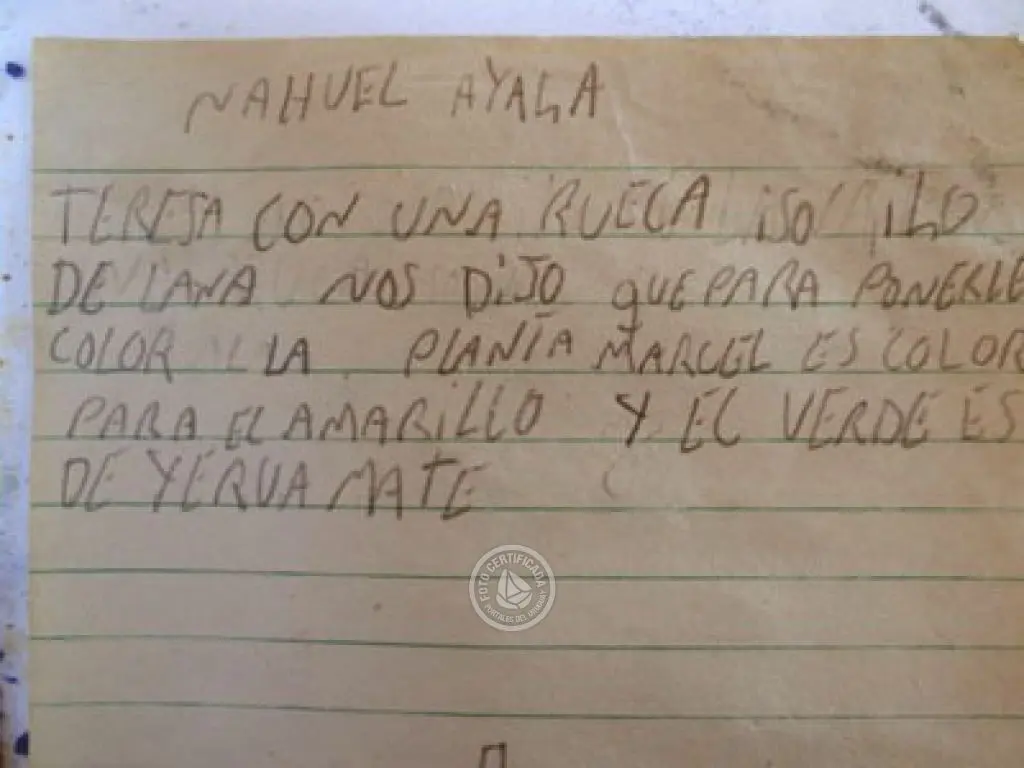 NAHUEL AYALA
TERESA CON UNA RUECA iSO iLO
DE LANA NOS DiJO qUE PARA PONERLE
COLOR LA PLANTA MARCEL ES COLOR
PARA EL AMARiLLO Y EL VERDE ES
DE YERVA MATE
FOTO CERTIFICADA
PORTALES DEL URUGUAY